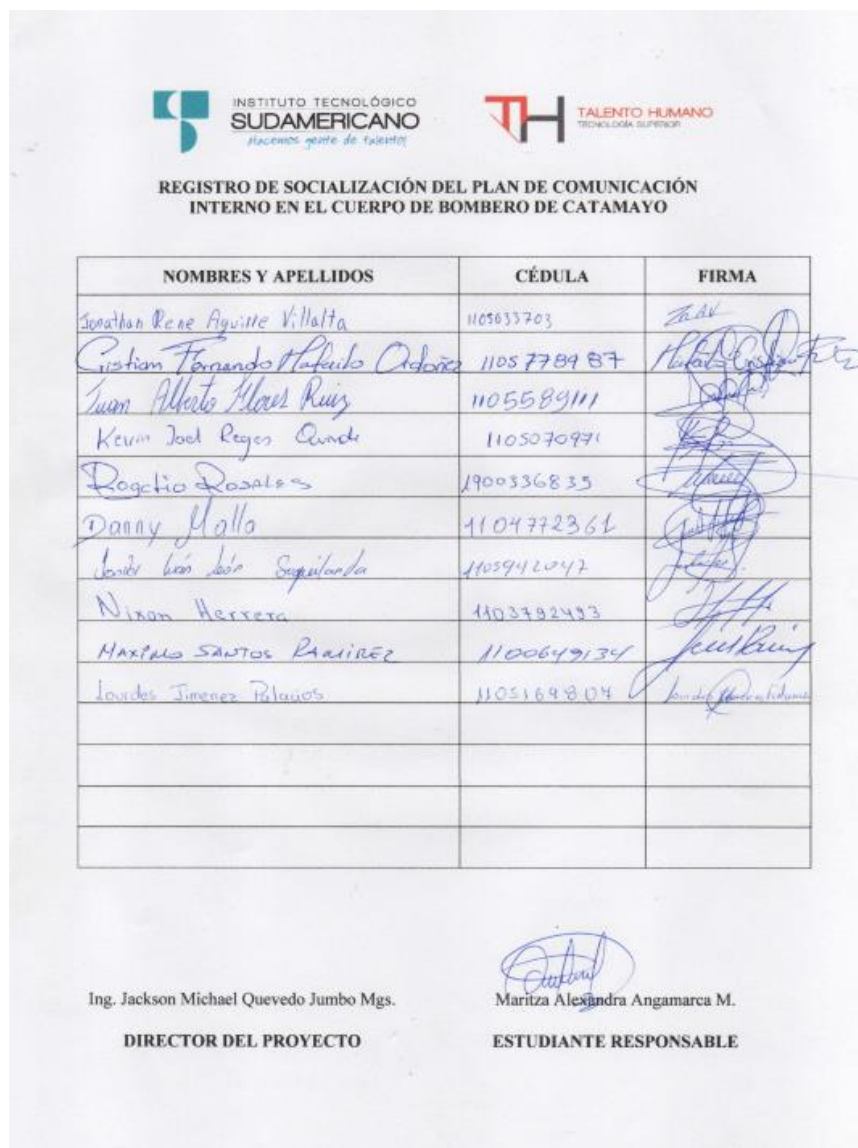 INSTITUTO TECNOLÓGICO
SUDAMERICANO
Hacemos gente de talento!
TH TALENTO HUMANO
TECNOLOGÍA SUPERIOR
REGISTRO DE SOCIALIZACIÓN DEL PLAN DE COMUNICACIÓN
INTERNO EN EL CUERPO DE BOMBERO DE CATAMAYO
NOMBRES Y APELLIDOS CÉDULA FIRMA
Jonathan Rene Aguirre Villalta 1105633703
Cristian Fernando Ordoñez 1105778987
Juan Alberto Flores Ruiz 1105589111
Kevin Joel Reyes 1105070971
Rogelio Rosales 1900336835
Danny Malla 1104772361
León 1105942047
Nixon Herrera 1103792493
MAXIMO SANTOS RAMIREZ 1100649134
Lourdes Jimenez Palacios 1105169804
Ing. Jackson Michael Quevedo Jumbo Mgs. Maritza Alexandra Angamarca M.
DIRECTOR DEL PROYECTO ESTUDIANTE RESPONSABLE